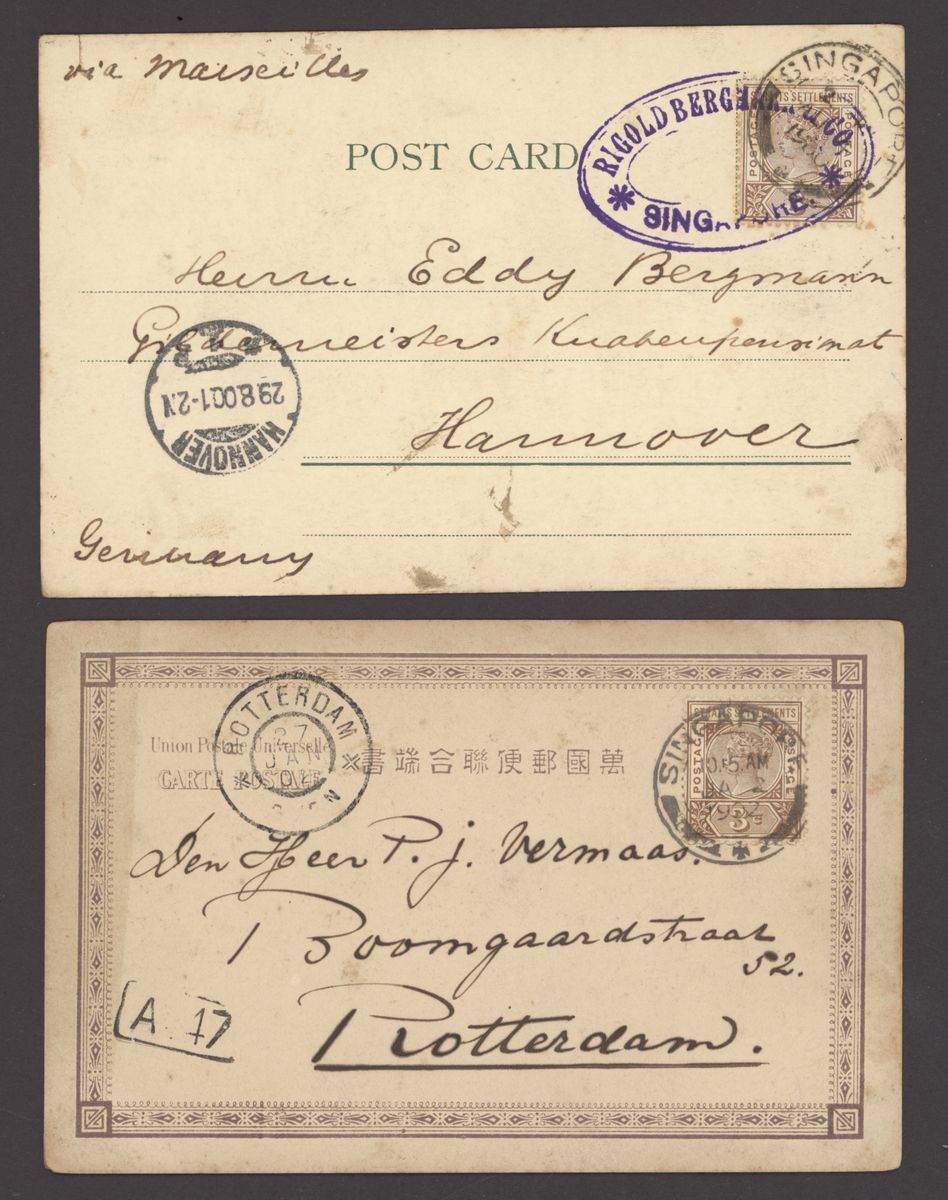 via Marseilles
POST CARD
RIGOLD BERGMANN & CO.
SINGAPORE.
SINGAPORE
STRAITS SETTLEMENTS
POSTAGE
Herrn Eddy Bergmann
Gildemeisters Knabenpensionat
Hannover
Germany
HANNOVER
29.8.00.1-2.N
ROTTERDAM
27
JAN
02
Union Postale Universelle
CARTE POSTALE
書端合聯便郵國萬
STRAITS SETTLEMENTS
POSTAGE
3 cs
SINGAPORE
10.5 AM
JA 2
1902
Den Heer P. J. Vermaas.
Boomgaardstraat
52.
Rotterdam.
A. 17